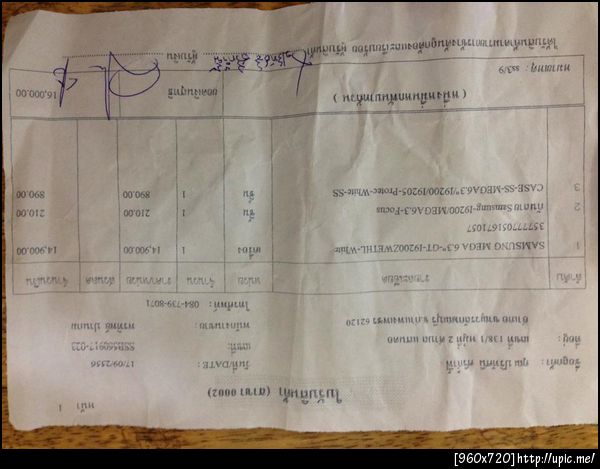 หน้า 1
ใบรับสินค้า (สาขา 00002)
ชื่อลูกค้า : คุณ
วันที่/DATE : 17/09/2556
ที่อยู่ : เลขที่ 138/1 หมู่ที่ 2 ตำบล
เลขที่ : SSB560917-022
อำเภอ ขาณุวรลักษบุรี จ.กำแพงเพชร 62120
พนักงานขาย :
โทรศัพท์ : 084-739-8071
ลำดับ รายละเอียด หน่วย จำนวน ราคา/หน่วย ส่วนลด จำนวนเงิน
1 SAMSUNG MEGA 6.3"-GT-I9200ZWETHL-White- เครื่อง 1 14,900.00 14,900.00
357777051671057
2 กันรอย Samsung-I9200/MEGA6.3-Focus ชิ้น 1 210.00 210.00
3 CASE-SS-MEGA6.3"/I9200/I9205-Protec-White-SS ชิ้น 1 890.00 890.00
( หนึ่งหมื่นหกพันบาทถ้วน ) ยอดเงินสุทธิ 16,000.00
หมายเหตุ : ss3/9
ได้รับสินค้าตามรายการข้างต้นถูกต้องและเรียบร้อย ผู้รับสินค้า ผู้รับเงิน
[960x720] http://upic.me/